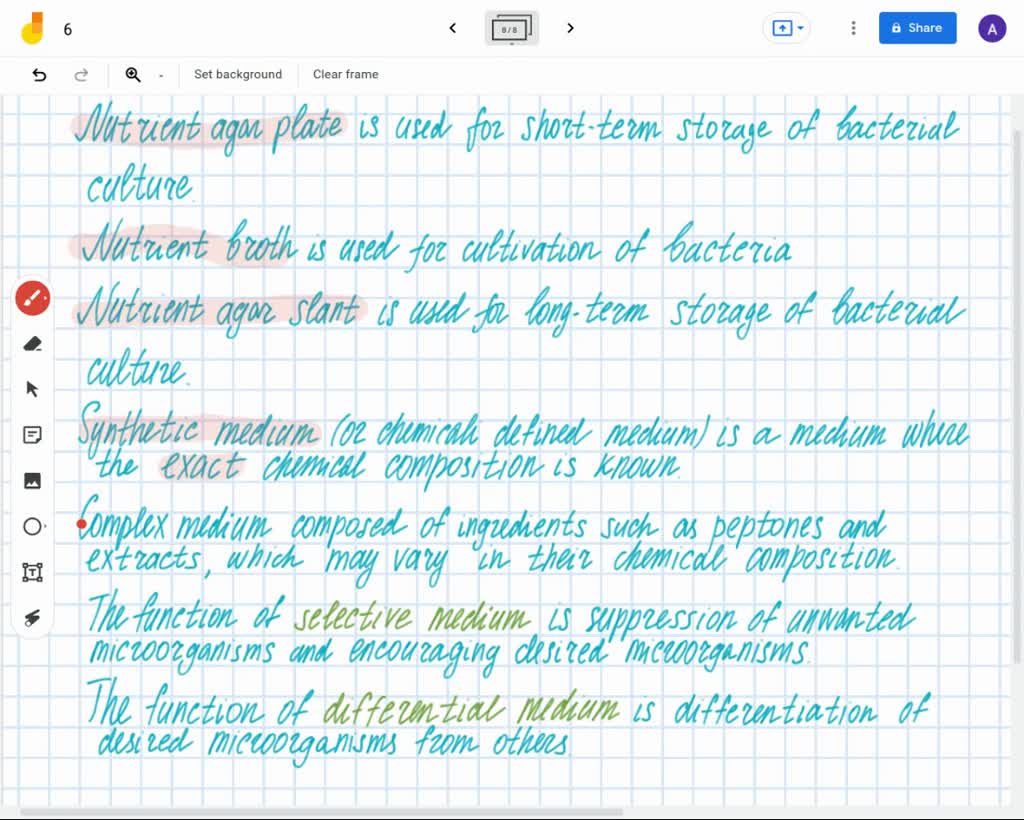 6
8/8
Share
A
Set background
Clear frame
Nutrient agar plate is used for short-term storage of bacterial
culture.
Nutrient broth is used for cultivation of bacteria
Nutrient agar slant is used for long-term storage of bacterial
culture.
Synthetic medium (or chemicali defined medium) is a medium where
the exact chemical composition is known.
Complex medium composed of ingredients such as peptones and
extracts, which may vary in their chemical composition.
The function of selective medium is suppression of unwanted
microorganisms and encouraging desired microorganisms.
The function of differential medium is differentiation of
desired microorganisms from others.